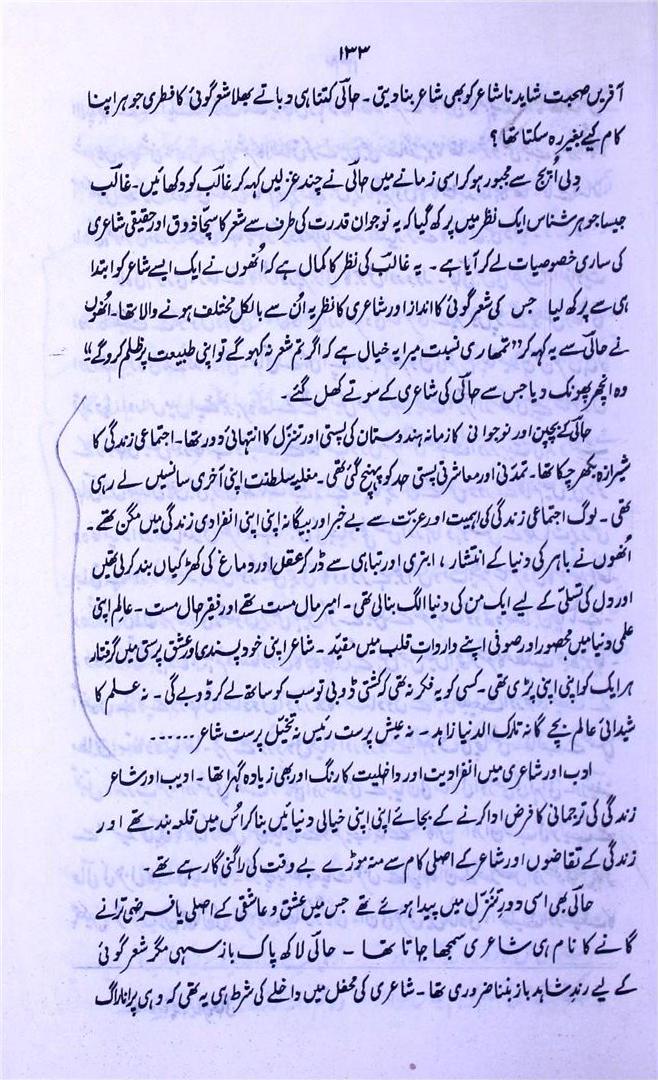 ۱۳۳
آفریں صحبت شاید ناشاعر کو بھی شاعر بنا دیتی ۔ حالؔی کتنا ہی دباتے بھلا شعر گوئی کا فطری جوہر اپنا
کام کیے بغیر رہ سکتا تھا ؟
دِلی اُپج سے مجبور ہو کر اسی زمانے میں حالؔی نے چند غزلیں کہہ کر غالبؔ کو دکھائیں۔ غالبؔ
جیسا جوہر شناس ایک نظر میں پرکھ گیا کہ یہ نوجوان قدرت کی طرف سے شعر کا سچّا ذوق اور حقیقی شاعری
کی ساری خصوصیات لے کر آیا ہے ۔ یہ غالبؔ کی نظر کا کمال ہے کہ اُنھوں نے ایک ایسے شاعر کو ابتدا
ہی سے پرکھ لیا جس کی شعر گوئی کا انداز اور شاعری کا نظریہ اُن سے بالکل مختلف ہونے والا تھا۔ اُنھوں
نے حالؔی سے یہ کہہ کر "تمھاری نسبت میرا یہ خیال ہے کہ اگر تم شعر نہ کہو گے تو اپنی طبیعت پر ظلم کرو گے"
وہ انچھر پھونک دیا جس سے حالؔی کی شاعری کے سوتے کھل گئے ۔
حالؔی کے بچپن اور نوجوانی کا زمانہ ہندوستان کی پستی اور تنزّل کا انتہائی دور تھا۔ اجتماعی زندگی کا
شیرازہ بکھر چکا تھا ۔ تمدّنی اور معاشرتی پستی حد کو پہنچ گئی تھی ۔ مغلیہ سلطنت اپنی آخری سانسیں لے رہی
تھی ۔ لوگ اجتماعی زندگی کی اہمیت اور عزّت سے بے خبر اور بیگانہ اپنی اپنی انفرادی زندگی میں مگن تھے ۔
اُنھوں نے باہر کی دنیا کے انتشار ، ابتری اور تباہی سے ڈر کر عقل اور دماغ کی کھڑکیاں بند کر لی تھیں
اور دل کی تسلّی کے لیے ایک من کی دنیا الگ بنا لی تھی ۔ امیر مال مست تھے اور فقیر حال مست ۔ عالِم اپنی
علمی دنیا میں محصور اور صوفی اپنے وارداتِ قلب میں مقیّد ۔ شاعر اپنی خود پسندی اور عشق پرستی میں گرفتار
ہر ایک کو اپنی اپنی پڑی تھی ۔ کسی کو یہ فکر نہ تھی کہ کشتی ڈوبی تو سب کو ساتھ لے کر ڈوبے گی ۔ نہ علم کا
شیدائی عالم بچے گا نہ تارک الدنیا زاہد ۔ نہ عیش پرست رئیس نہ تخیّل پرست شاعر ......
ادب اور شاعری میں انفرادیت اور داخلیت کا رنگ اور بھی زیادہ گہرا تھا ۔ ادیب اور شاعر
زندگی کی ترجمانی کا فرض ادا کرنے کے بجائے اپنی اپنی خیالی دنیائیں بنا کر اُس میں قلعہ بند تھے اور
زندگی کے تقاضوں اور شاعر کے اصلی کام سے منہ موڑے بے وقت کی راگنی گا رہے تھے ۔
حالؔی بھی اسی دورِ تنزّل میں پیدا ہوئے تھے جس میں عشق و عاشقی کے اصلی یا فرضی ترانے
گانے کا نام ہی شاعری سمجھا جاتا تھا ۔ حالؔی لاکھ پاک باز سہی مگر شعر گوئی
کے لیے رندِ شاہد باز بننا ضروری تھا ۔ شاعری کی محفل میں داخلے کی شرط ہی یہ تھی کہ وہی پرانا راگ